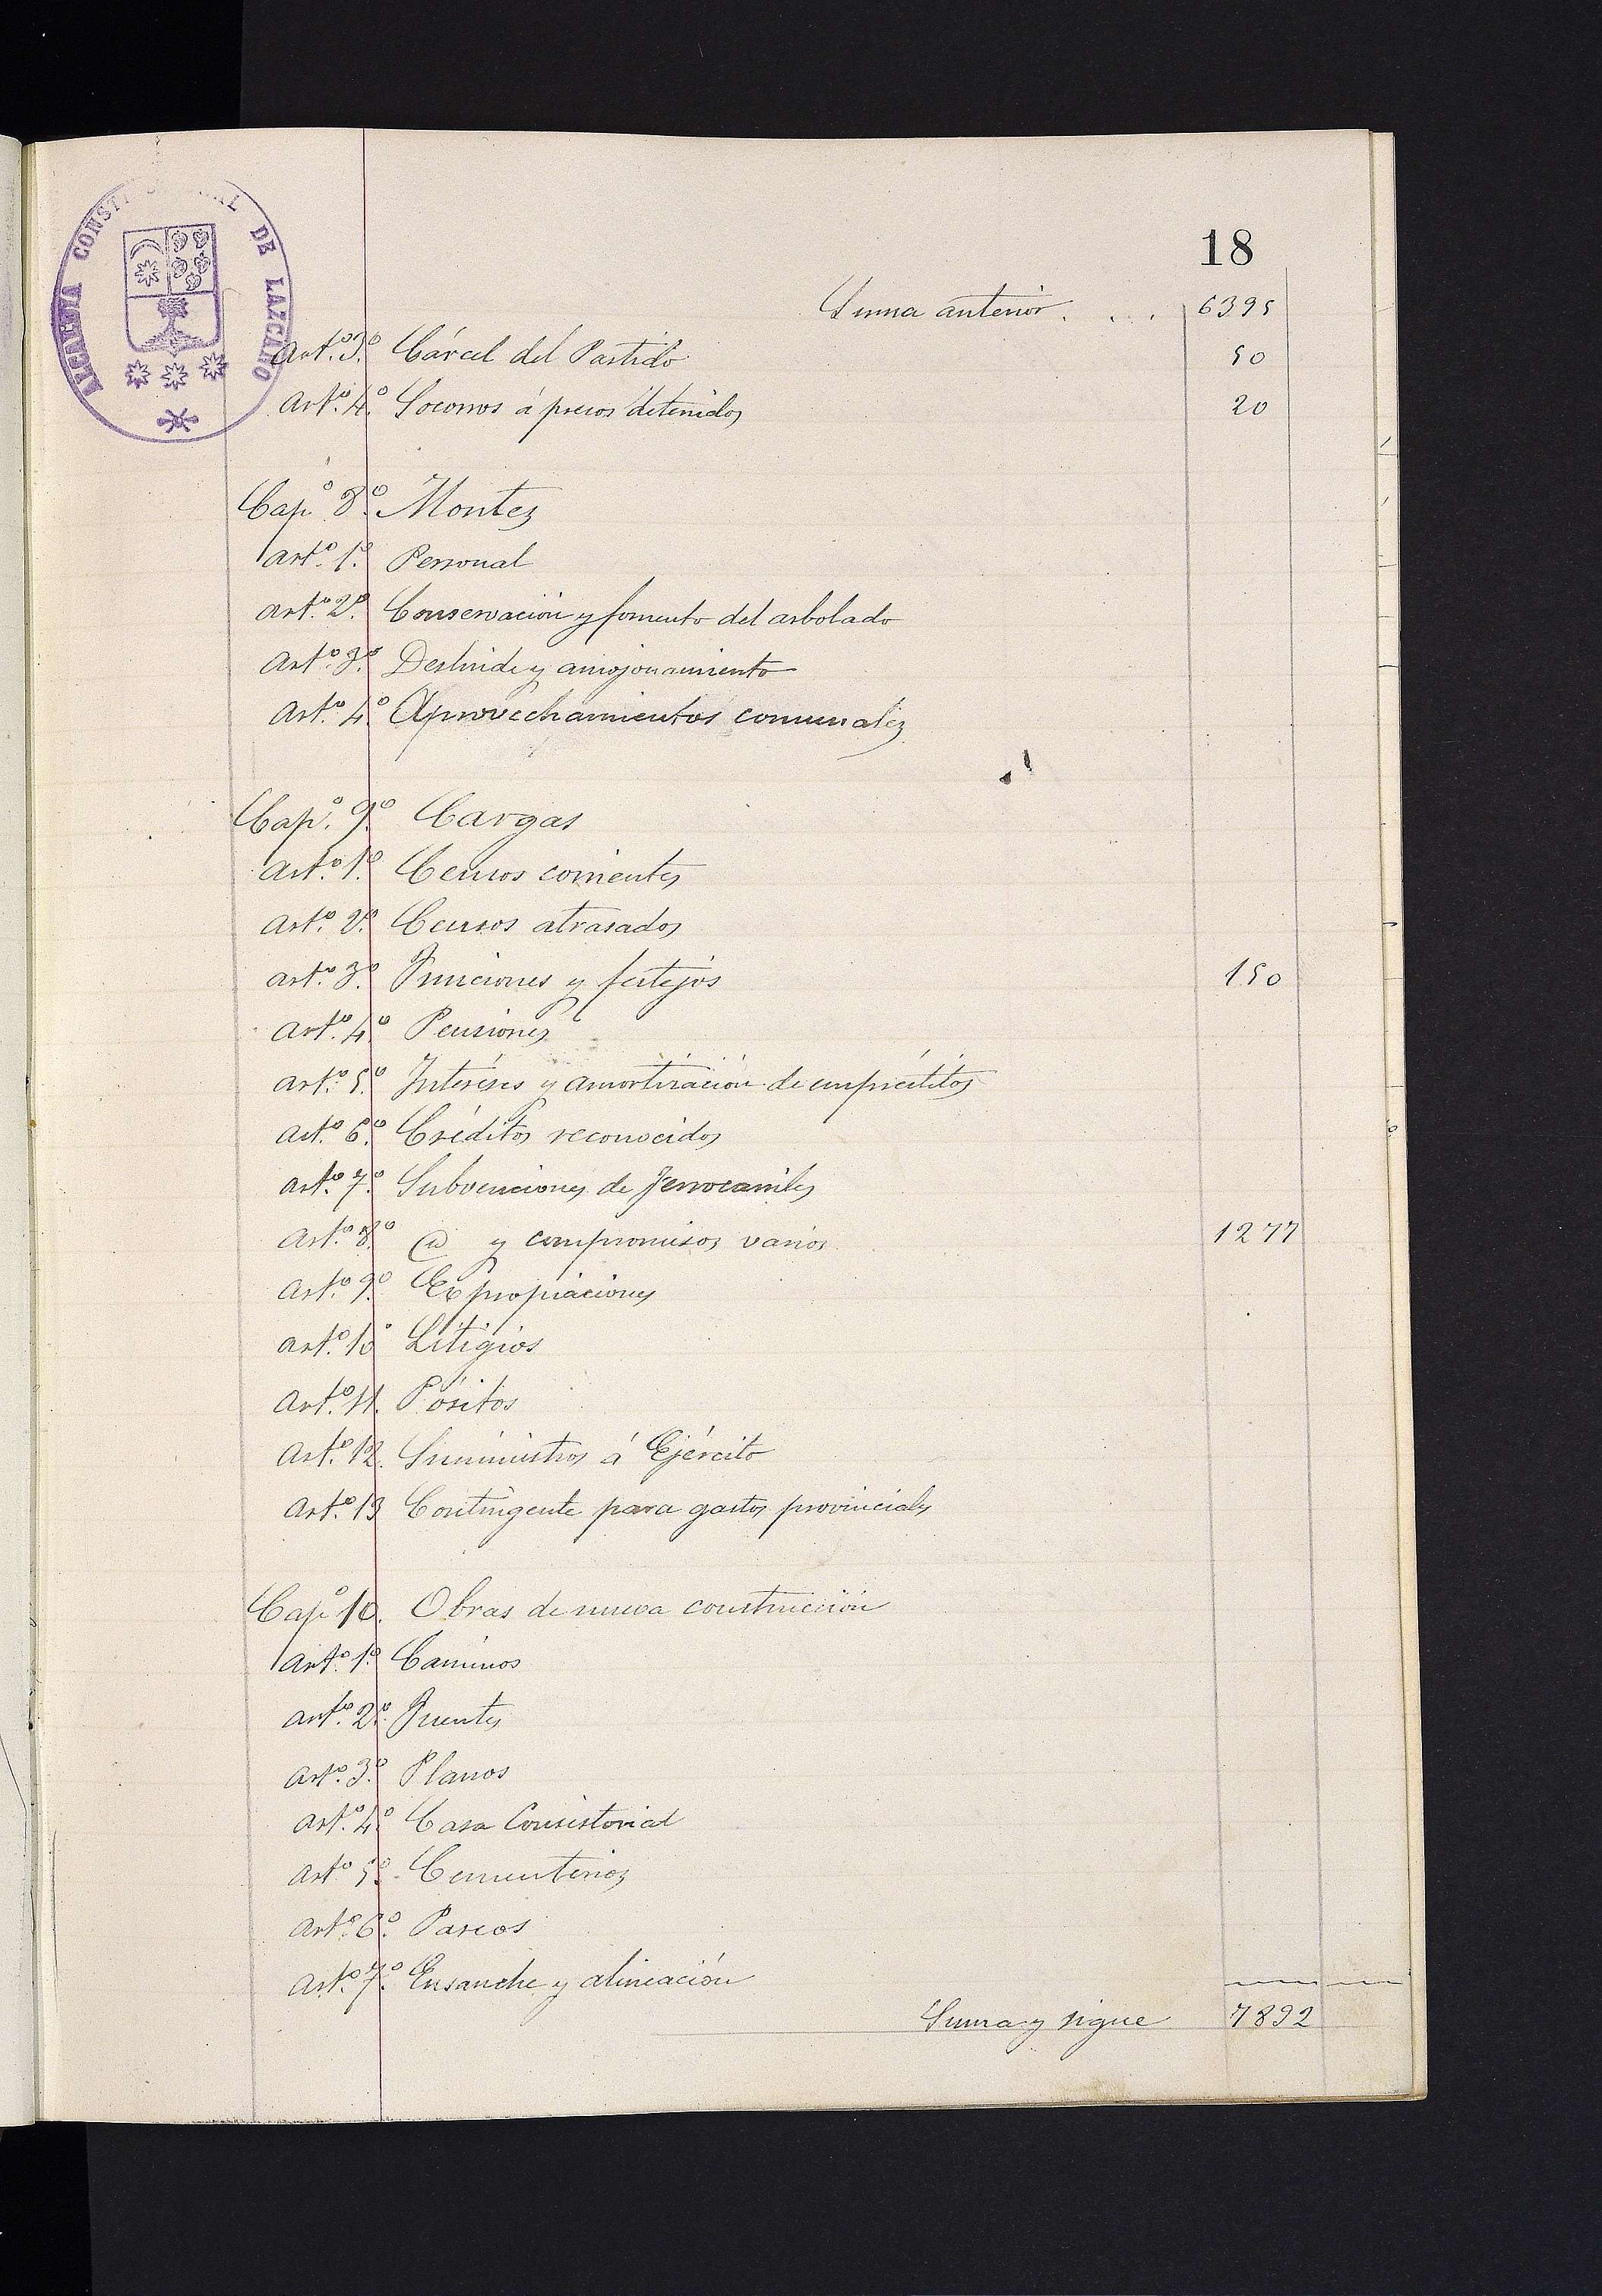 ALCALDIA CONSTI AL DE LAZCANO
18
Suma anterior. . . . 6395
Art.º 3.º Cárcel del Partido 50
Art.º 4.º Socorros á presos detenidos 20
Cap.º 8.º Montes
Art.º 1.º Personal
Art.º 2.º Conservación y fomento del arbolado
Art.º 3.º Deslinde y amojonamiento
Art.º 4.º Aprovechamientos comunales
Cap.º 9.º Cargas
Art.º 1.º Censos corrientes
Art.º 2.º Censos atrasados
Art.º 3.º Funciones y festejos 150
Art.º 4.º Pensiones
Art.º 5.º Intereses y amortización de empréstitos
Art.º 6.º Créditos reconocidos
Art.º 7.º Subvenciones de ferrocarriles
Art.º 8.º y compromisos varios 1277
Art.º 9.º Expropiaciones
Art.º 10 Litigios
Art.º 11. Pósitos
Art.º 12. Suministros á Ejército
Art.º 13 Contingente para gastos provinciales
Cap.º 10. Obras de nueva construcción
Art.º 1.º Caminos
Art.º 2.º Puentes
Art.º 3.º Planos
Art.º 4.º Casa Consistorial
Art.º 5.º Cementerios
Art.º 6.º Paseos
Art.º 7.º Ensanche y alineación
Suma y sigue 7892